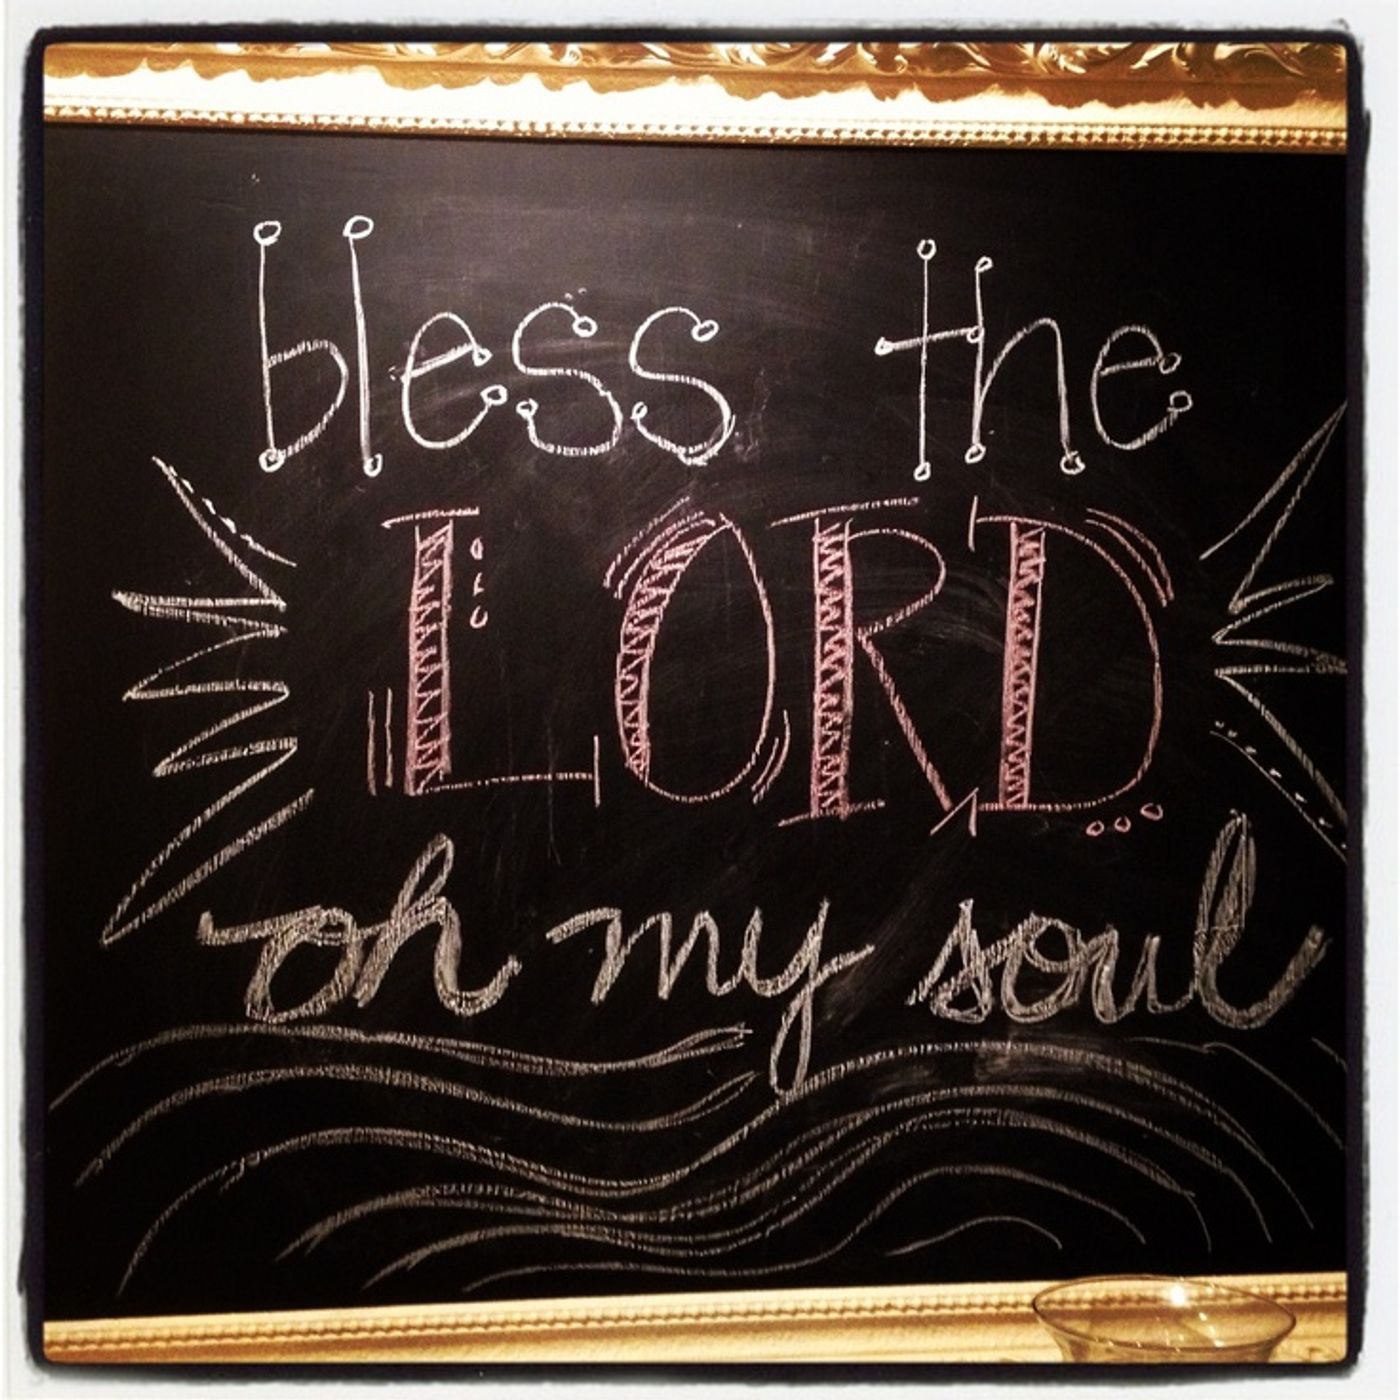 bless the
LORD
oh my soul